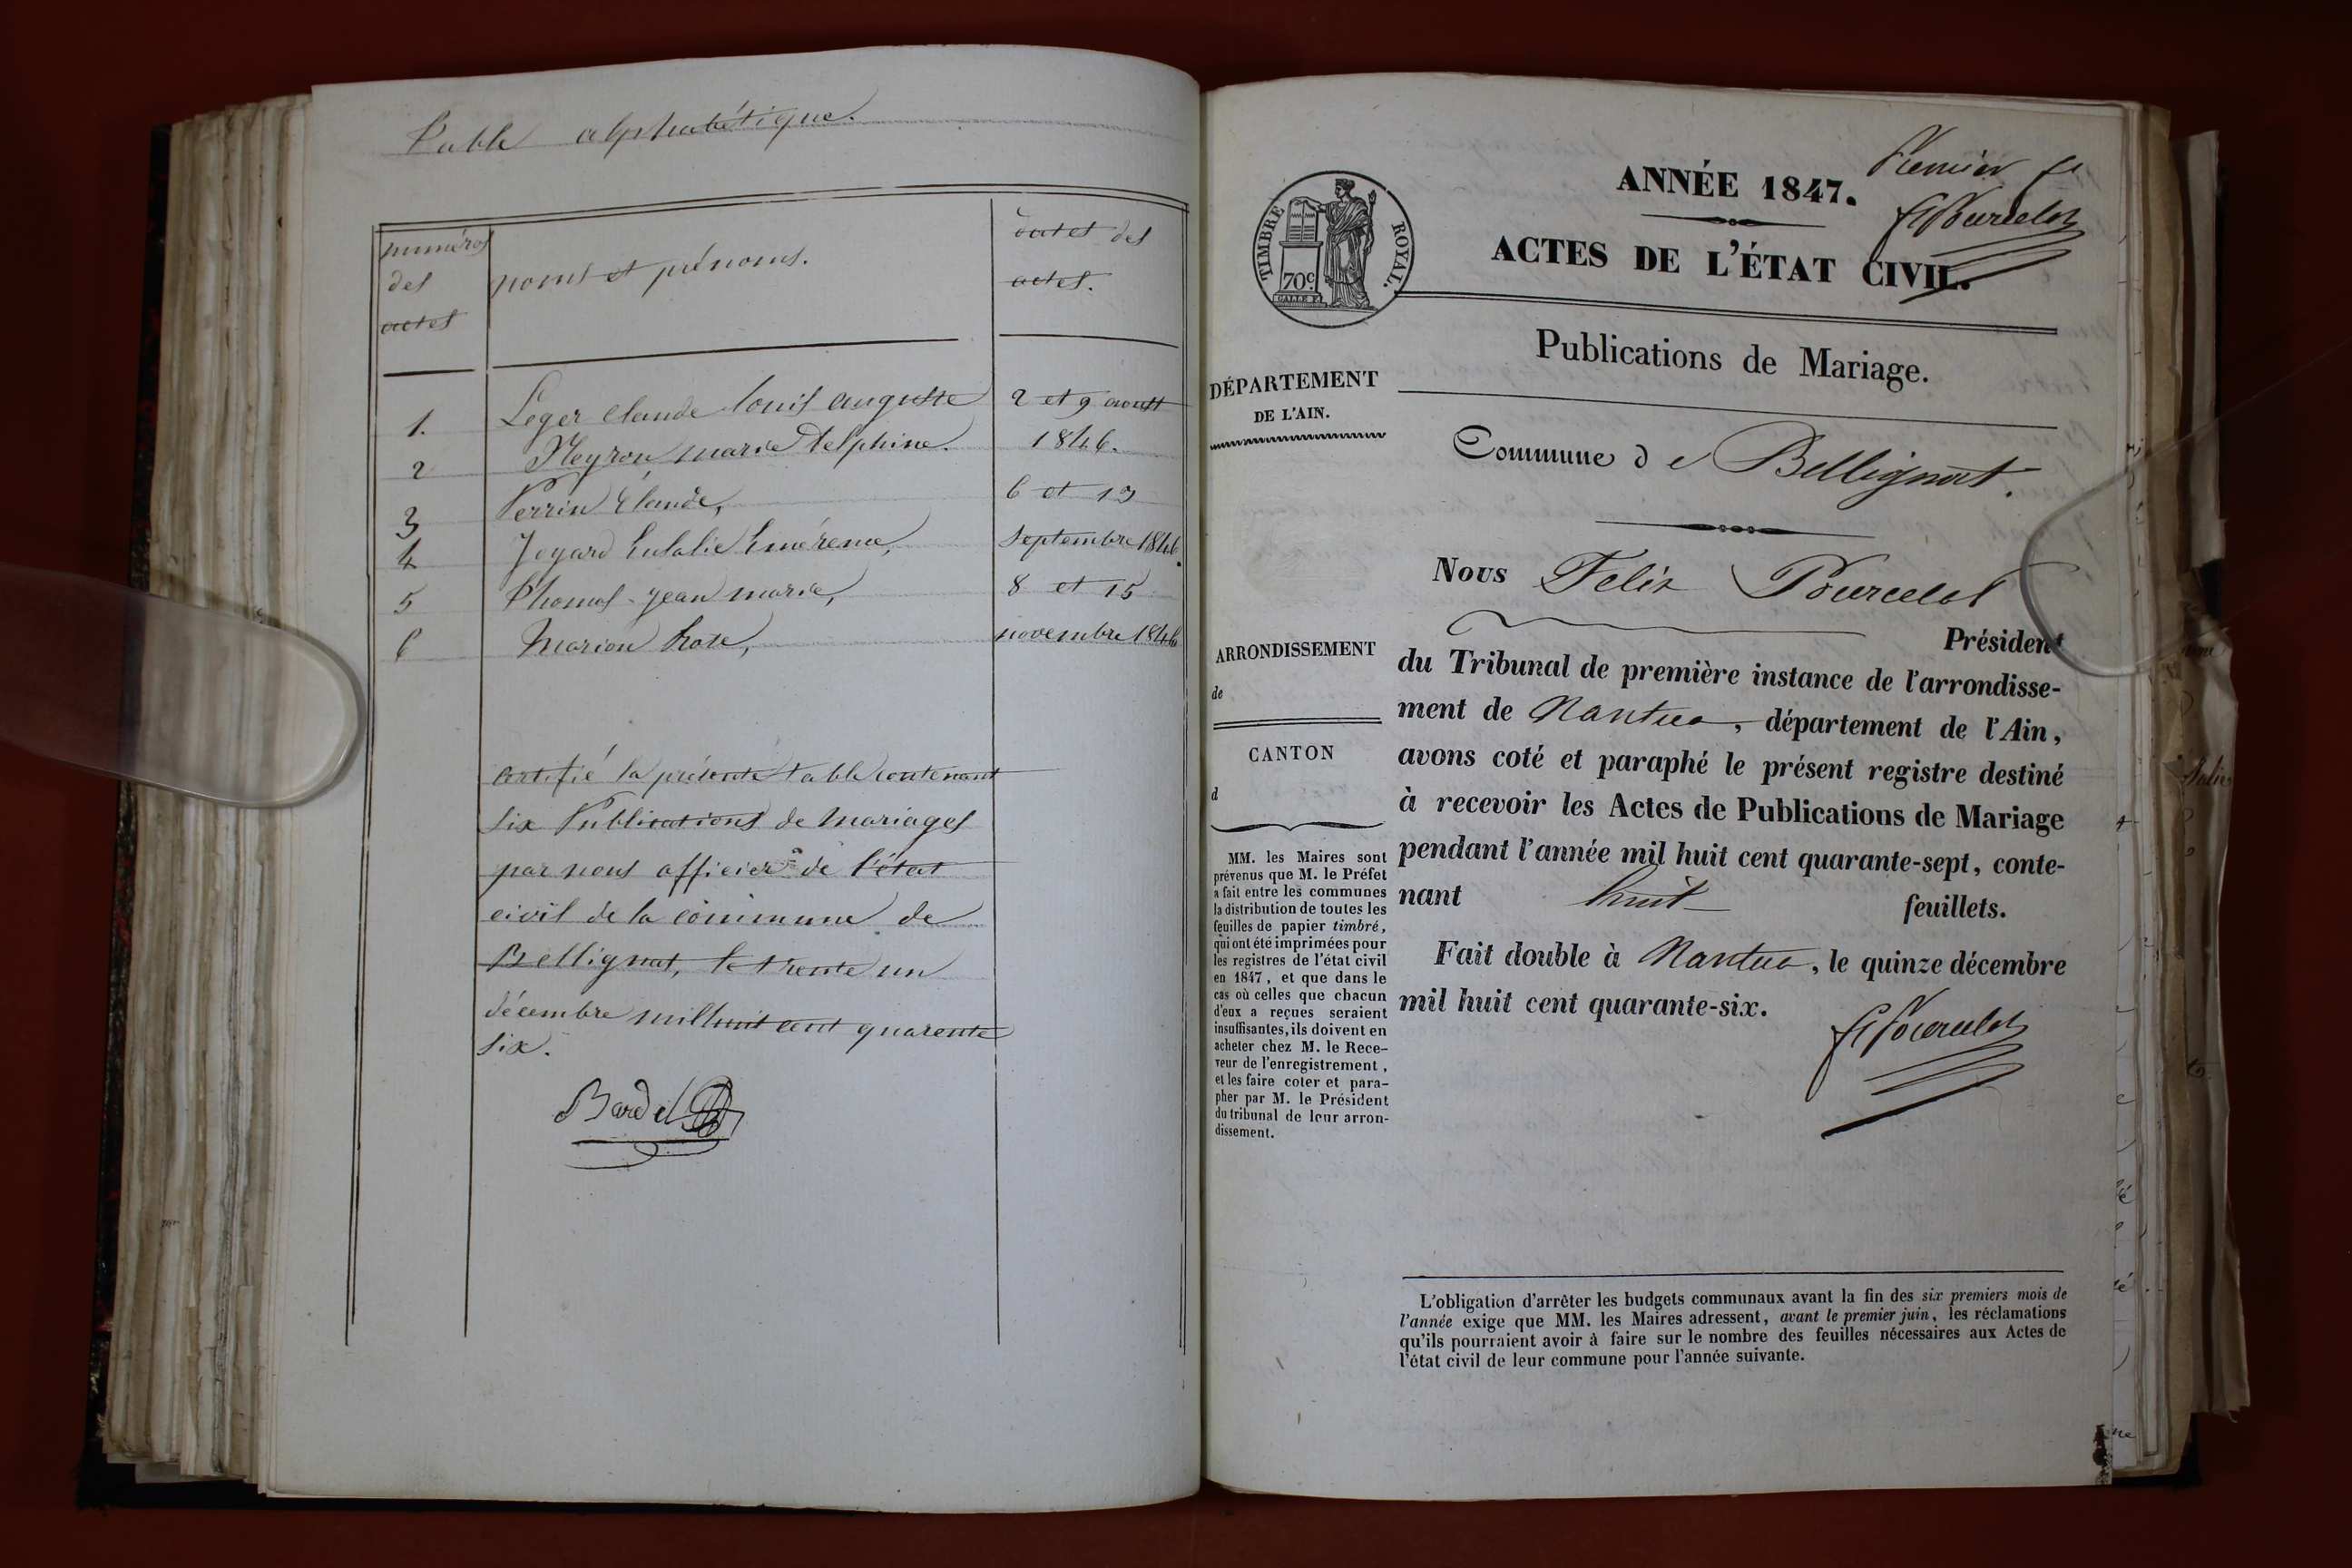 Table alphabétique.
numéros
des
actes
noms et prénoms.
dates des
actes.
1. Leger claude louis auguste 2 et 9 aoust
2 Neyron marie Delphine. 1846.
3 Perrin Claude, 6 et 13
4 Joyard Eulalie Emérence, Septembre 1846.
5 Thomas jean marie, 8 et 15
6 Marion Rose, novembre 1846
certifié la présente table contenant
six Publications de mariages
par nous officier de l'état
civil de la commune de
Bellignat, le trente un
décembre mil huit cent quarente
six.
Bardet
Premier f.
FPourcelot
ANNÉE 1847.
ACTES DE L'ÉTAT CIVIL.
TIMBRE ROYAL.
70c.
Publications de Mariage.
DÉPARTEMENT
DE L'AIN.
Commune de Bellignat.
Nous Felix Pourcelot
Président
du Tribunal de première instance de l'arrondisse-
ment de Nantua, département de l'Ain,
avons coté et paraphé le présent registre destiné
à recevoir les Actes de Publications de Mariage
pendant l'année mil huit cent quarante-sept, conte-
nant huit feuillets.
Fait double à Nantua, le quinze décembre
mil huit cent quarante-six.
FPourcelot
ARRONDISSEMENT
de
CANTON
d
MM. les Maires sont
prévenus que M. le Préfet
a fait entre les communes
la distribution de toutes les
feuilles de papier timbré,
qui ont été imprimées pour
les registres de l'état civil
en 1847, et que dans le
cas où celles que chacun
d'eux a reçues seraient
insuffisantes, ils doivent en
acheter chez M. le Rece-
veur de l'enregistrement,
et les faire coter et para-
pher par M. le Président
du tribunal de leur arron-
dissement.
L'obligation d'arrêter les budgets communaux avant la fin des six premiers mois de
l'année exige que MM. les Maires adressent, avant le premier juin, les réclamations
qu'ils pourraient avoir à faire sur le nombre des feuilles nécessaires aux Actes de
l'état civil de leur commune pour l'année suivante.